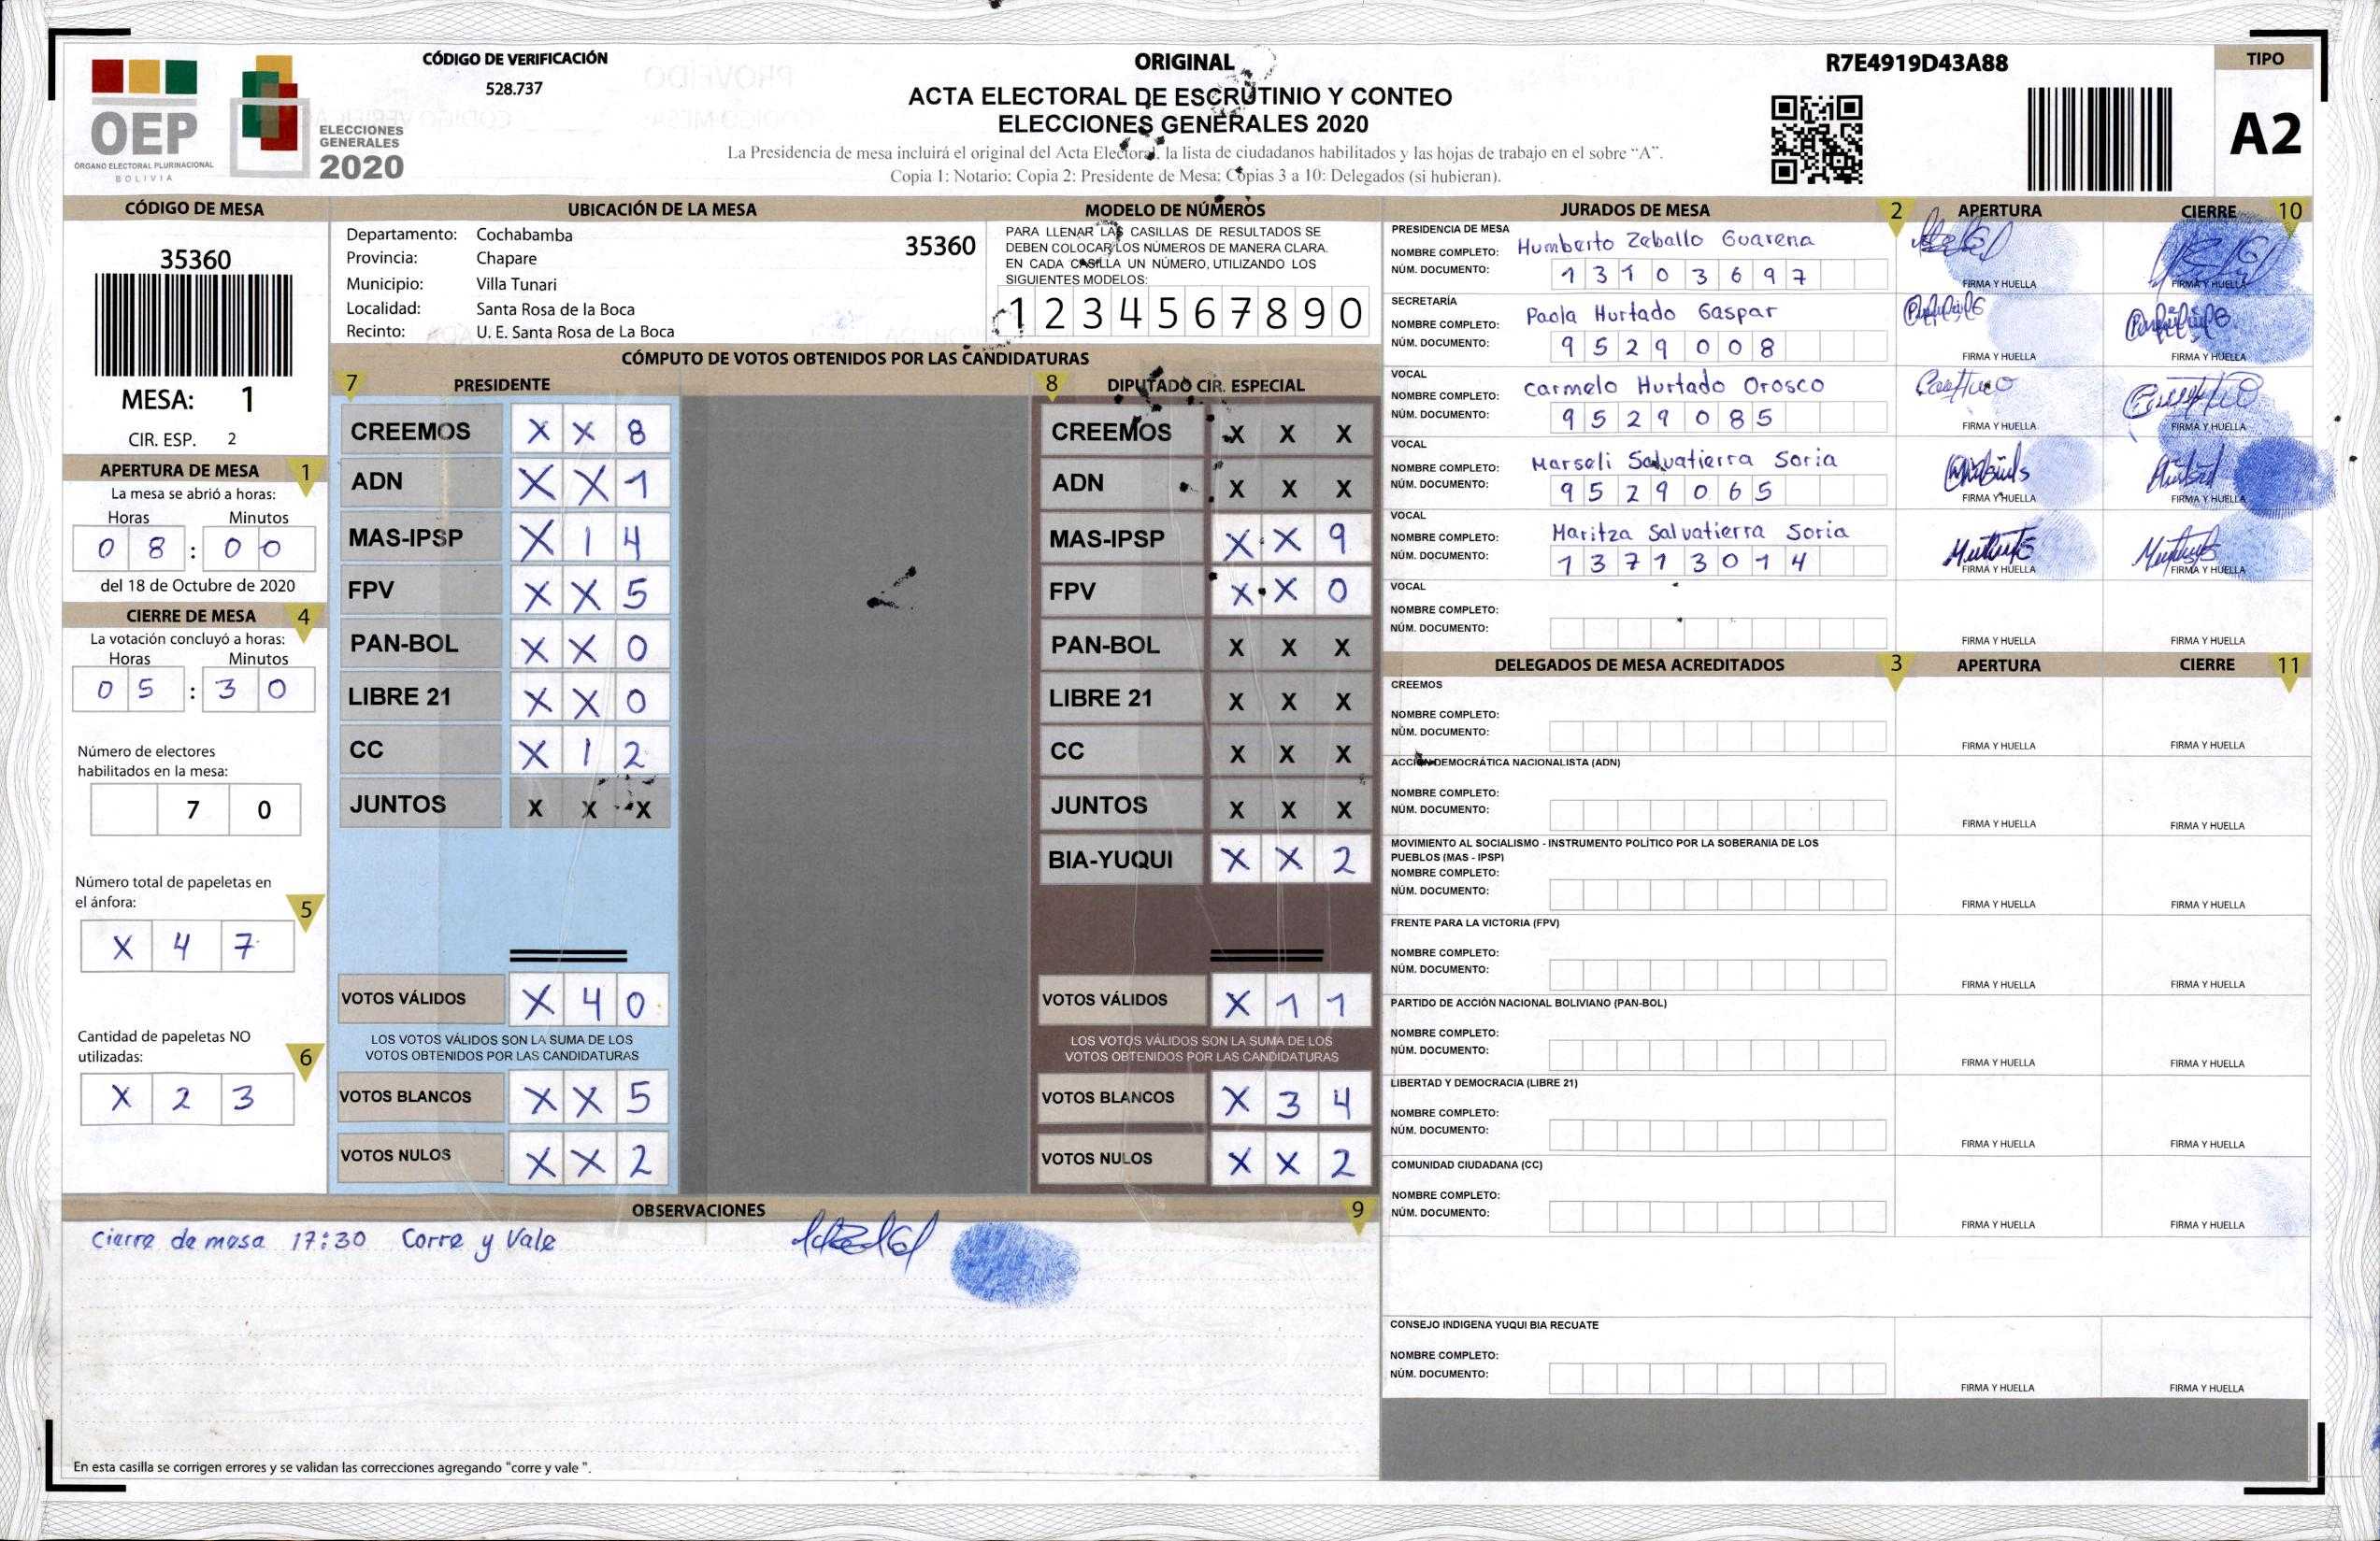 OEP
ÓRGANO ELECTORAL PLURINACIONAL
BOLIVIA
ELECCIONES
GENERALES
2020
CÓDIGO DE VERIFICACIÓN
528.737
ORIGINAL
ACTA ELECTORAL DE ESCRUTINIO Y CONTEO
ELECCIONES GENERALES 2020
La Presidencia de mesa incluirá el original del Acta Electoral, la lista de ciudadanos habilitados y las hojas de trabajo en el sobre “A”.
Copia 1: Notario; Copia 2: Presidente de Mesa; Copias 3 a 10: Delegados (si hubieran).
R7E4919D43A88
TIPO
A2
CÓDIGO DE MESA
35360
MESA: 1
CIR. ESP. 2
APERTURA DE MESA 1
La mesa se abrió a horas:
Horas Minutos
0 8 : 0 0
del 18 de Octubre de 2020
CIERRE DE MESA 4
La votación concluyó a horas:
Horas Minutos
0 5 : 3 0
Número de electores
habilitados en la mesa:
7 0
Número total de papeletas en
el ánfora: 5
X 4 7
Cantidad de papeletas NO
utilizadas: 6
X 2 3
UBICACIÓN DE LA MESA
Departamento: Cochabamba
35360
Provincia: Chapare
Municipio: Villa Tunari
Localidad: Santa Rosa de la Boca
Recinto: U. E. Santa Rosa de La Boca
MODELO DE NÚMEROS
PARA LLENAR LAS CASILLAS DE RESULTADOS SE
DEBEN COLOCAR LOS NÚMEROS DE MANERA CLARA.
EN CADA CASILLA UN NÚMERO, UTILIZANDO LOS
SIGUIENTES MODELOS:
1 2 3 4 5 6 7 8 9 0
CÓMPUTO DE VOTOS OBTENIDOS POR LAS CANDIDATURAS
7 PRESIDENTE
CREEMOS X X 8
ADN X X 1
MAS-IPSP X 1 4
FPV X X 5
PAN-BOL X X 0
LIBRE 21 X X 0
CC X 1 2
JUNTOS X X X
VOTOS VÁLIDOS X 4 0
LOS VOTOS VÁLIDOS SON LA SUMA DE LOS
VOTOS OBTENIDOS POR LAS CANDIDATURAS
VOTOS BLANCOS X X 5
VOTOS NULOS X X 2
8 DIPUTADO CIR. ESPECIAL
CREEMOS X X X
ADN X X X
MAS-IPSP X X 9
FPV X X 0
PAN-BOL X X X
LIBRE 21 X X X
CC X X X
JUNTOS X X X
BIA-YUQUI X X 2
VOTOS VÁLIDOS X 1 1
LOS VOTOS VÁLIDOS SON LA SUMA DE LOS
VOTOS OBTENIDOS POR LAS CANDIDATURAS
VOTOS BLANCOS X 3 4
VOTOS NULOS X X 2
OBSERVACIONES 9
Cierre de mesa 17:30 Corre y Vale
En esta casilla se corrigen errores y se validan las correcciones agregando "corre y vale ".
JURADOS DE MESA 2 APERTURA CIERRE 10
PRESIDENCIA DE MESA
NOMBRE COMPLETO: Humberto Zeballo Guarena
NÚM. DOCUMENTO: 1 3 1 0 3 6 9 7
FIRMA Y HUELLA FIRMA Y HUELLA
SECRETARÍA
NOMBRE COMPLETO: Paola Hurtado Gaspar
NÚM. DOCUMENTO: 9 5 2 9 0 0 8
FIRMA Y HUELLA FIRMA Y HUELLA
VOCAL
NOMBRE COMPLETO: Carmelo Hurtado Orosco
NÚM. DOCUMENTO: 9 5 2 9 0 8 5
FIRMA Y HUELLA FIRMA Y HUELLA
VOCAL
NOMBRE COMPLETO: Marseli Salvatierra Soria
NÚM. DOCUMENTO: 9 5 2 9 0 6 5
FIRMA Y HUELLA FIRMA Y HUELLA
VOCAL
NOMBRE COMPLETO: Maritza Salvatierra Soria
NÚM. DOCUMENTO: 1 3 7 1 3 0 1 4
FIRMA Y HUELLA FIRMA Y HUELLA
VOCAL
NOMBRE COMPLETO:
NÚM. DOCUMENTO:
FIRMA Y HUELLA FIRMA Y HUELLA
DELEGADOS DE MESA ACREDITADOS 3 APERTURA CIERRE 11
CREEMOS
NOMBRE COMPLETO:
NÚM. DOCUMENTO:
FIRMA Y HUELLA FIRMA Y HUELLA
ACCIÓN DEMOCRÁTICA NACIONALISTA (ADN)
NOMBRE COMPLETO:
NÚM. DOCUMENTO:
FIRMA Y HUELLA FIRMA Y HUELLA
MOVIMIENTO AL SOCIALISMO - INSTRUMENTO POLÍTICO POR LA SOBERANIA DE LOS
PUEBLOS (MAS - IPSP)
NOMBRE COMPLETO:
NÚM. DOCUMENTO:
FIRMA Y HUELLA FIRMA Y HUELLA
FRENTE PARA LA VICTORIA (FPV)
NOMBRE COMPLETO:
NÚM. DOCUMENTO:
FIRMA Y HUELLA FIRMA Y HUELLA
PARTIDO DE ACCIÓN NACIONAL BOLIVIANO (PAN-BOL)
NOMBRE COMPLETO:
NÚM. DOCUMENTO:
FIRMA Y HUELLA FIRMA Y HUELLA
LIBERTAD Y DEMOCRACIA (LIBRE 21)
NOMBRE COMPLETO:
NÚM. DOCUMENTO:
FIRMA Y HUELLA FIRMA Y HUELLA
COMUNIDAD CIUDADANA (CC)
NOMBRE COMPLETO:
NÚM. DOCUMENTO:
FIRMA Y HUELLA FIRMA Y HUELLA
CONSEJO INDIGENA YUQUI BIA RECUATE
NOMBRE COMPLETO:
NÚM. DOCUMENTO:
FIRMA Y HUELLA FIRMA Y HUELLA